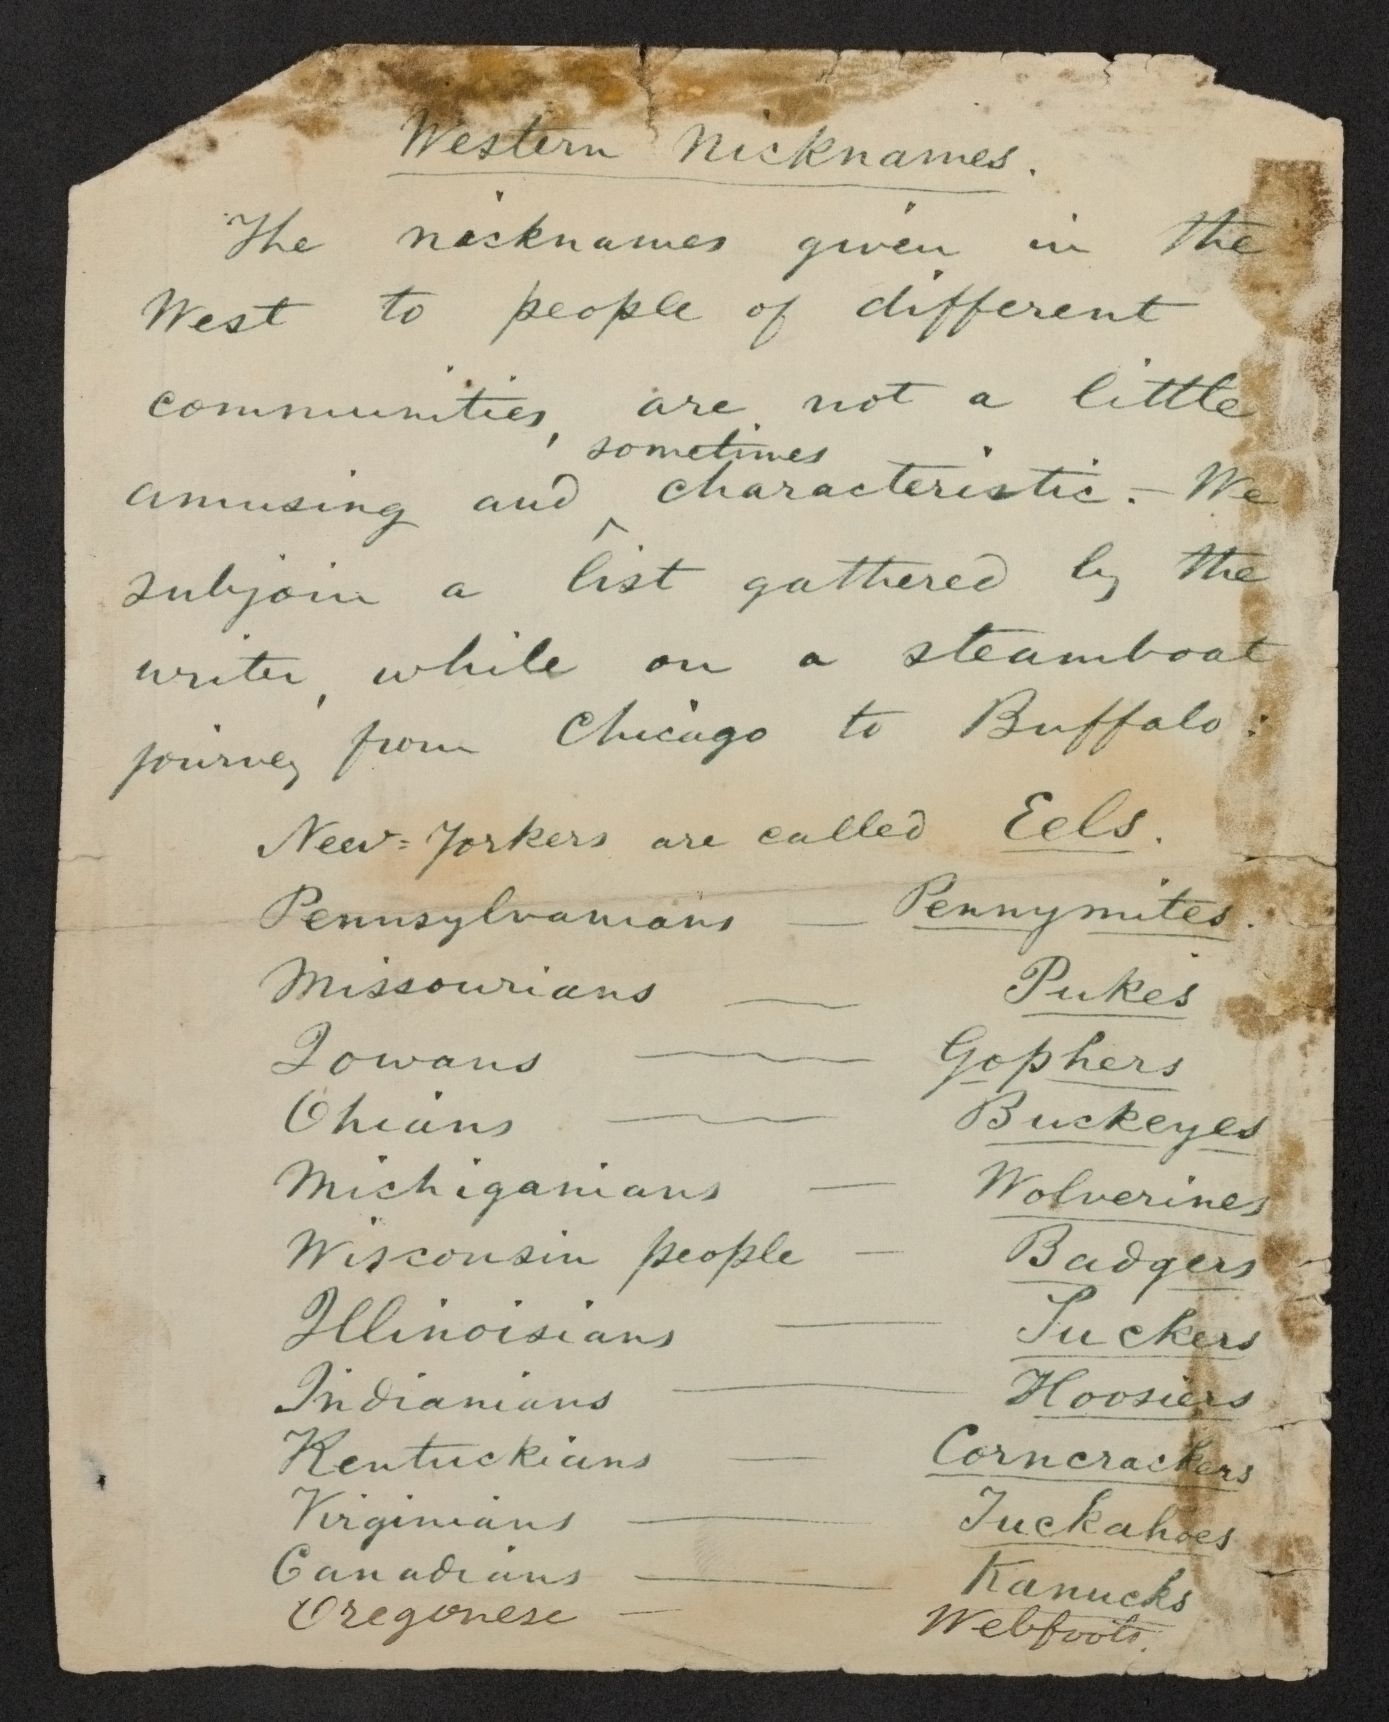 Western Nicknames.
The nicknames given in the
West to people of different
communities, are not a little
sometimes
amusing and ‸ characteristic. — We
subjoin a list gathered by the
writer, while on a steamboat
journey from Chicago to Buffalo:
New-Yorkers are called Eels.
Pennsylvanians — Pennymites.
Missourians — Pukes
Iowans — Gophers
Ohians — Buckeyes
Michiganians — Wolverines
Wisconsin people — Badgers
Illinoisians — Suckers
Indianians — Hoosiers
Kentuckians — Corncrackers
Virginians — Tuckahoes
Canadians — Kanucks
Oregonese — Webfoots.